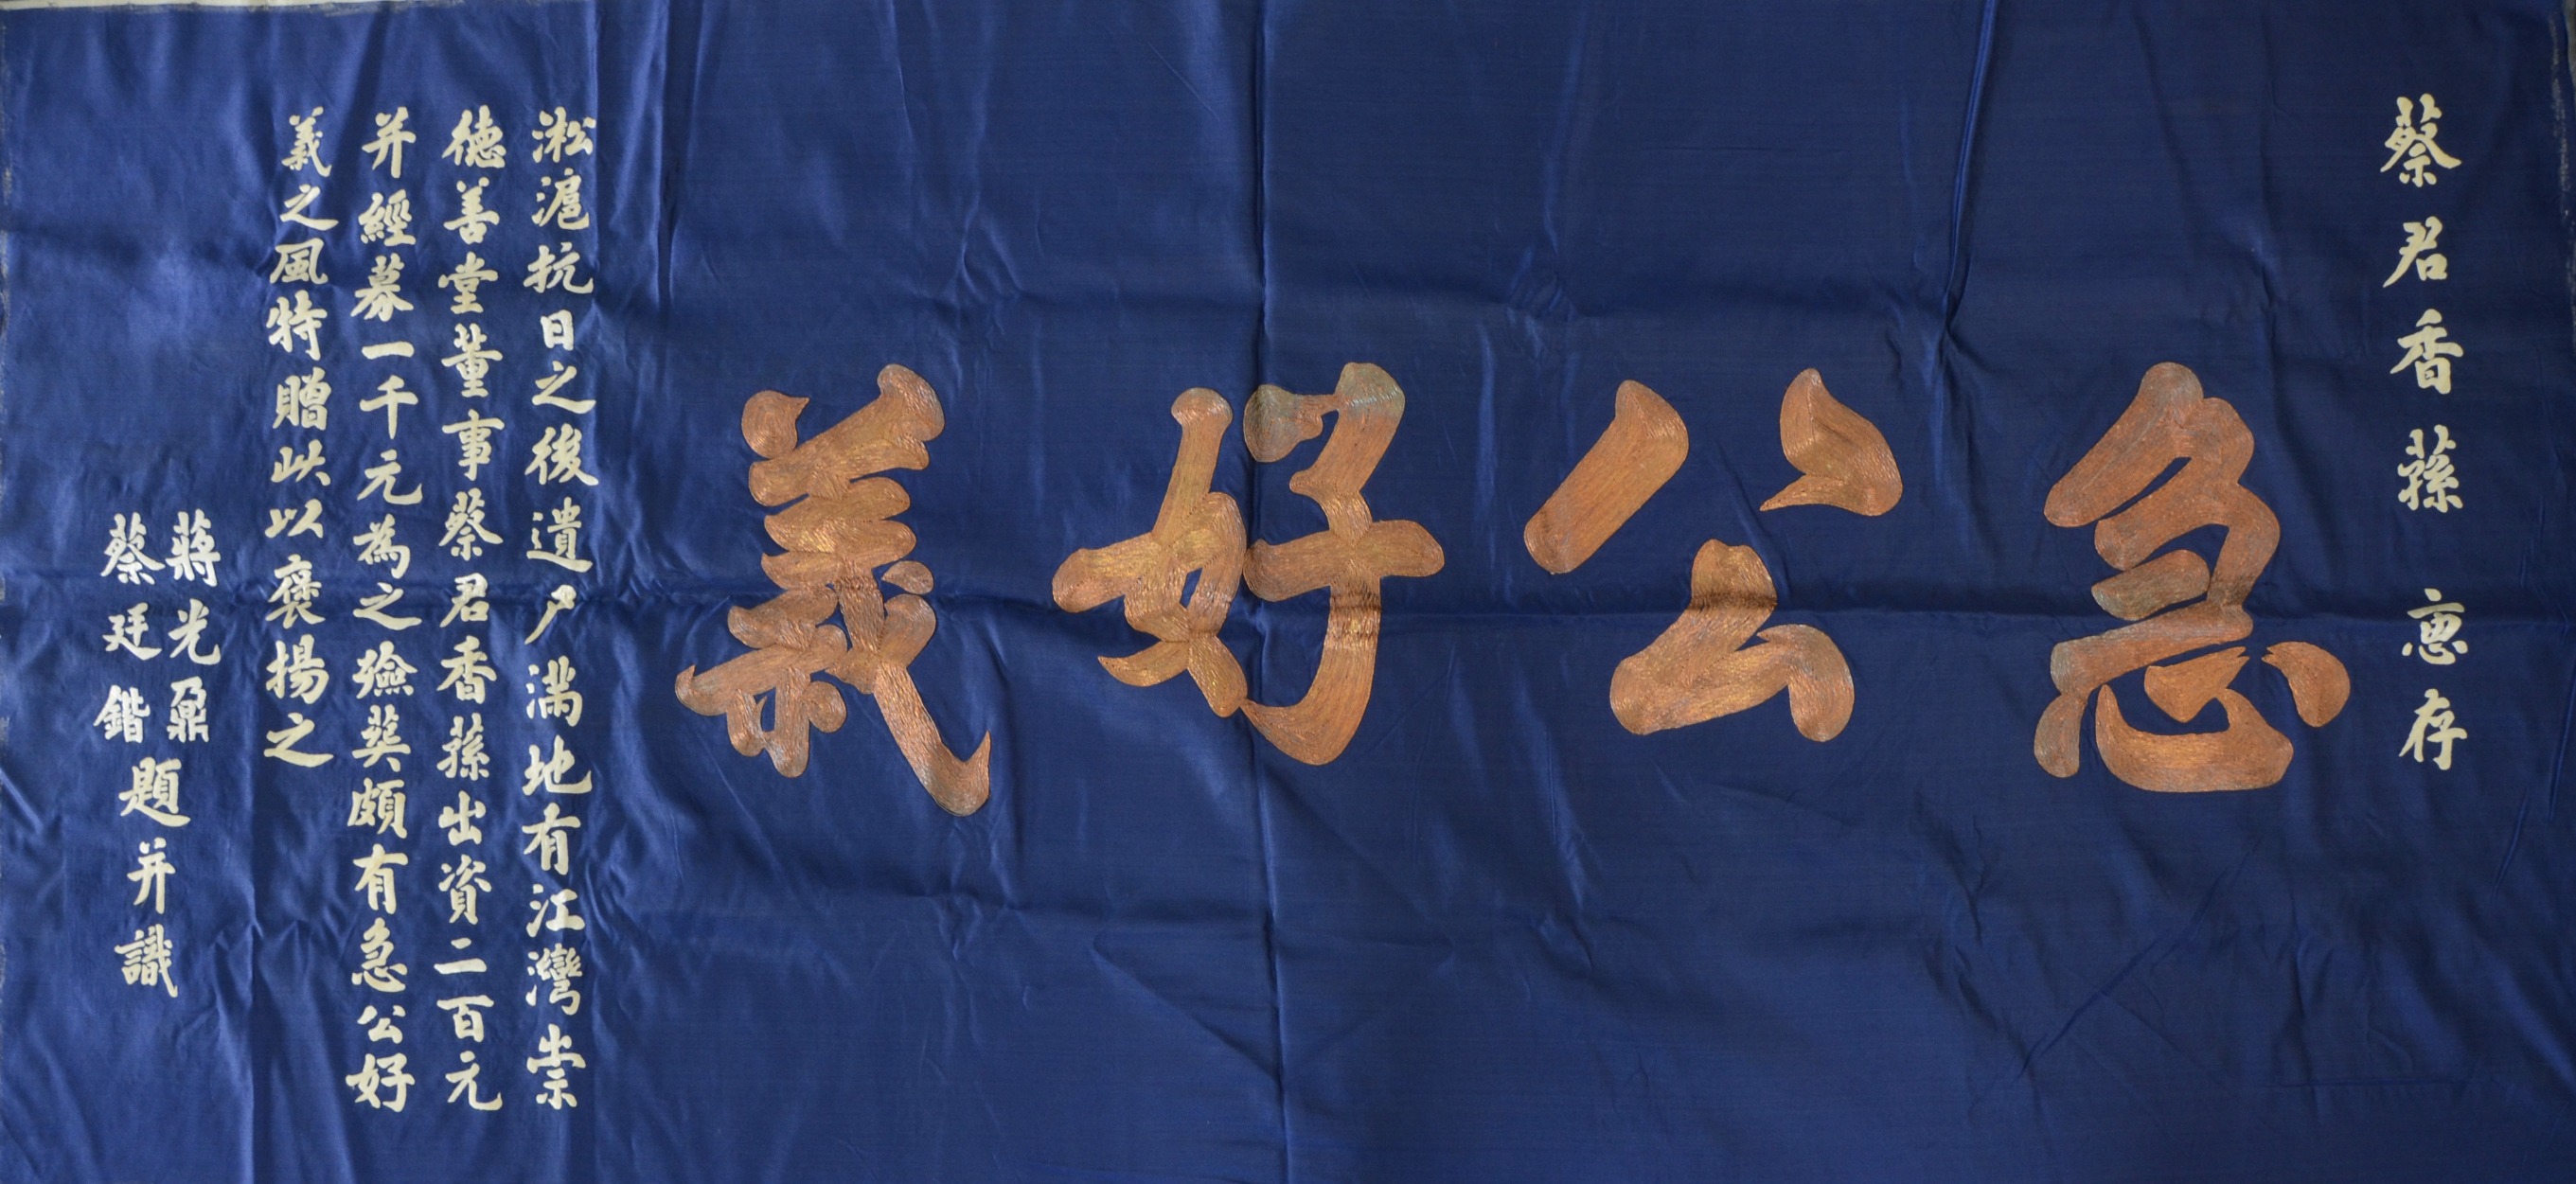 蔡君香蓀 惠存
急公好義
淞滬抗日之後遺尸滿地有江灣崇
德善堂董事蔡君香蓀出資二百元
并經募一千元為之殮葬頗有急公好
義之風特贈此以褒揚之
蔣光鼐
蔡廷鍇
題并識